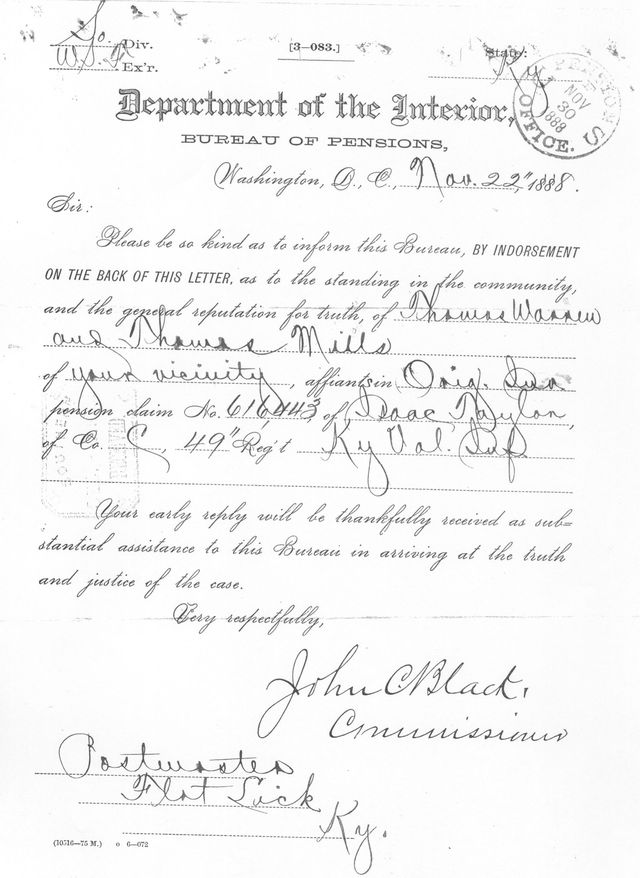 So. Div. [3—083.] State:
W.S.F. Ex'r. Ky
PENSIONS OFFICE. NOV 30 1888
Department of the Interior,
BUREAU OF PENSIONS,
Washington, D., C., Nov. 22", 1888.
Sir:
Please be so kind as to inform this Bureau, BY INDORSEMENT
ON THE BACK OF THIS LETTER, as to the standing in the community,
and the general reputation for truth, of Thomas Warren
and Thomas Mills
of your vicinity, affiants in Orig. Inv.
pension claim No. 616443, of Isaac Taylor,
of Co. C, 49" Reg't Ky Vol. Inf.
Your early reply will be thankfully received as sub=
stantial assistance to this Bureau in arriving at the truth
and justice of the case.
Very respectfully,
John C. Black,
Commissioner
Postmaster
Flat Lick
Ky.
(10516—75 M.) o 6—072